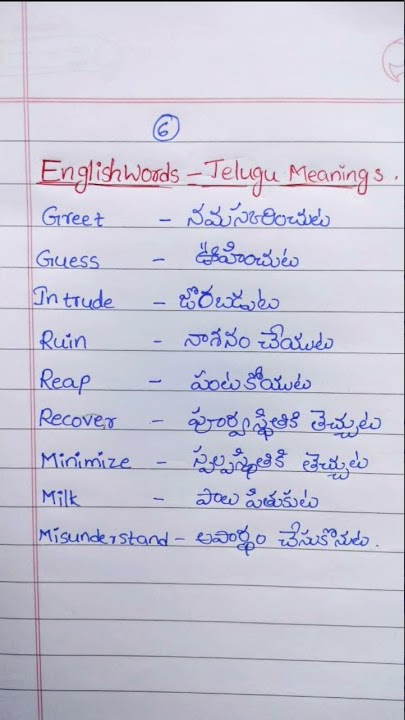 6
English Words - Telugu Meanings.
Greet - నమస్కరించుట
Guess - ఊహించుట
Intrude - జొరబడుట
Ruin - నాశనం చేయుట
Reap - పంటకోయుట
Recover - పూర్వస్థితికి తెచ్చుట
Minimize - స్వల్పస్థితికి తెచ్చుట
Milk - పాలు పితుకుట
Misunderstand - అపార్థం చేసుకొనుట.